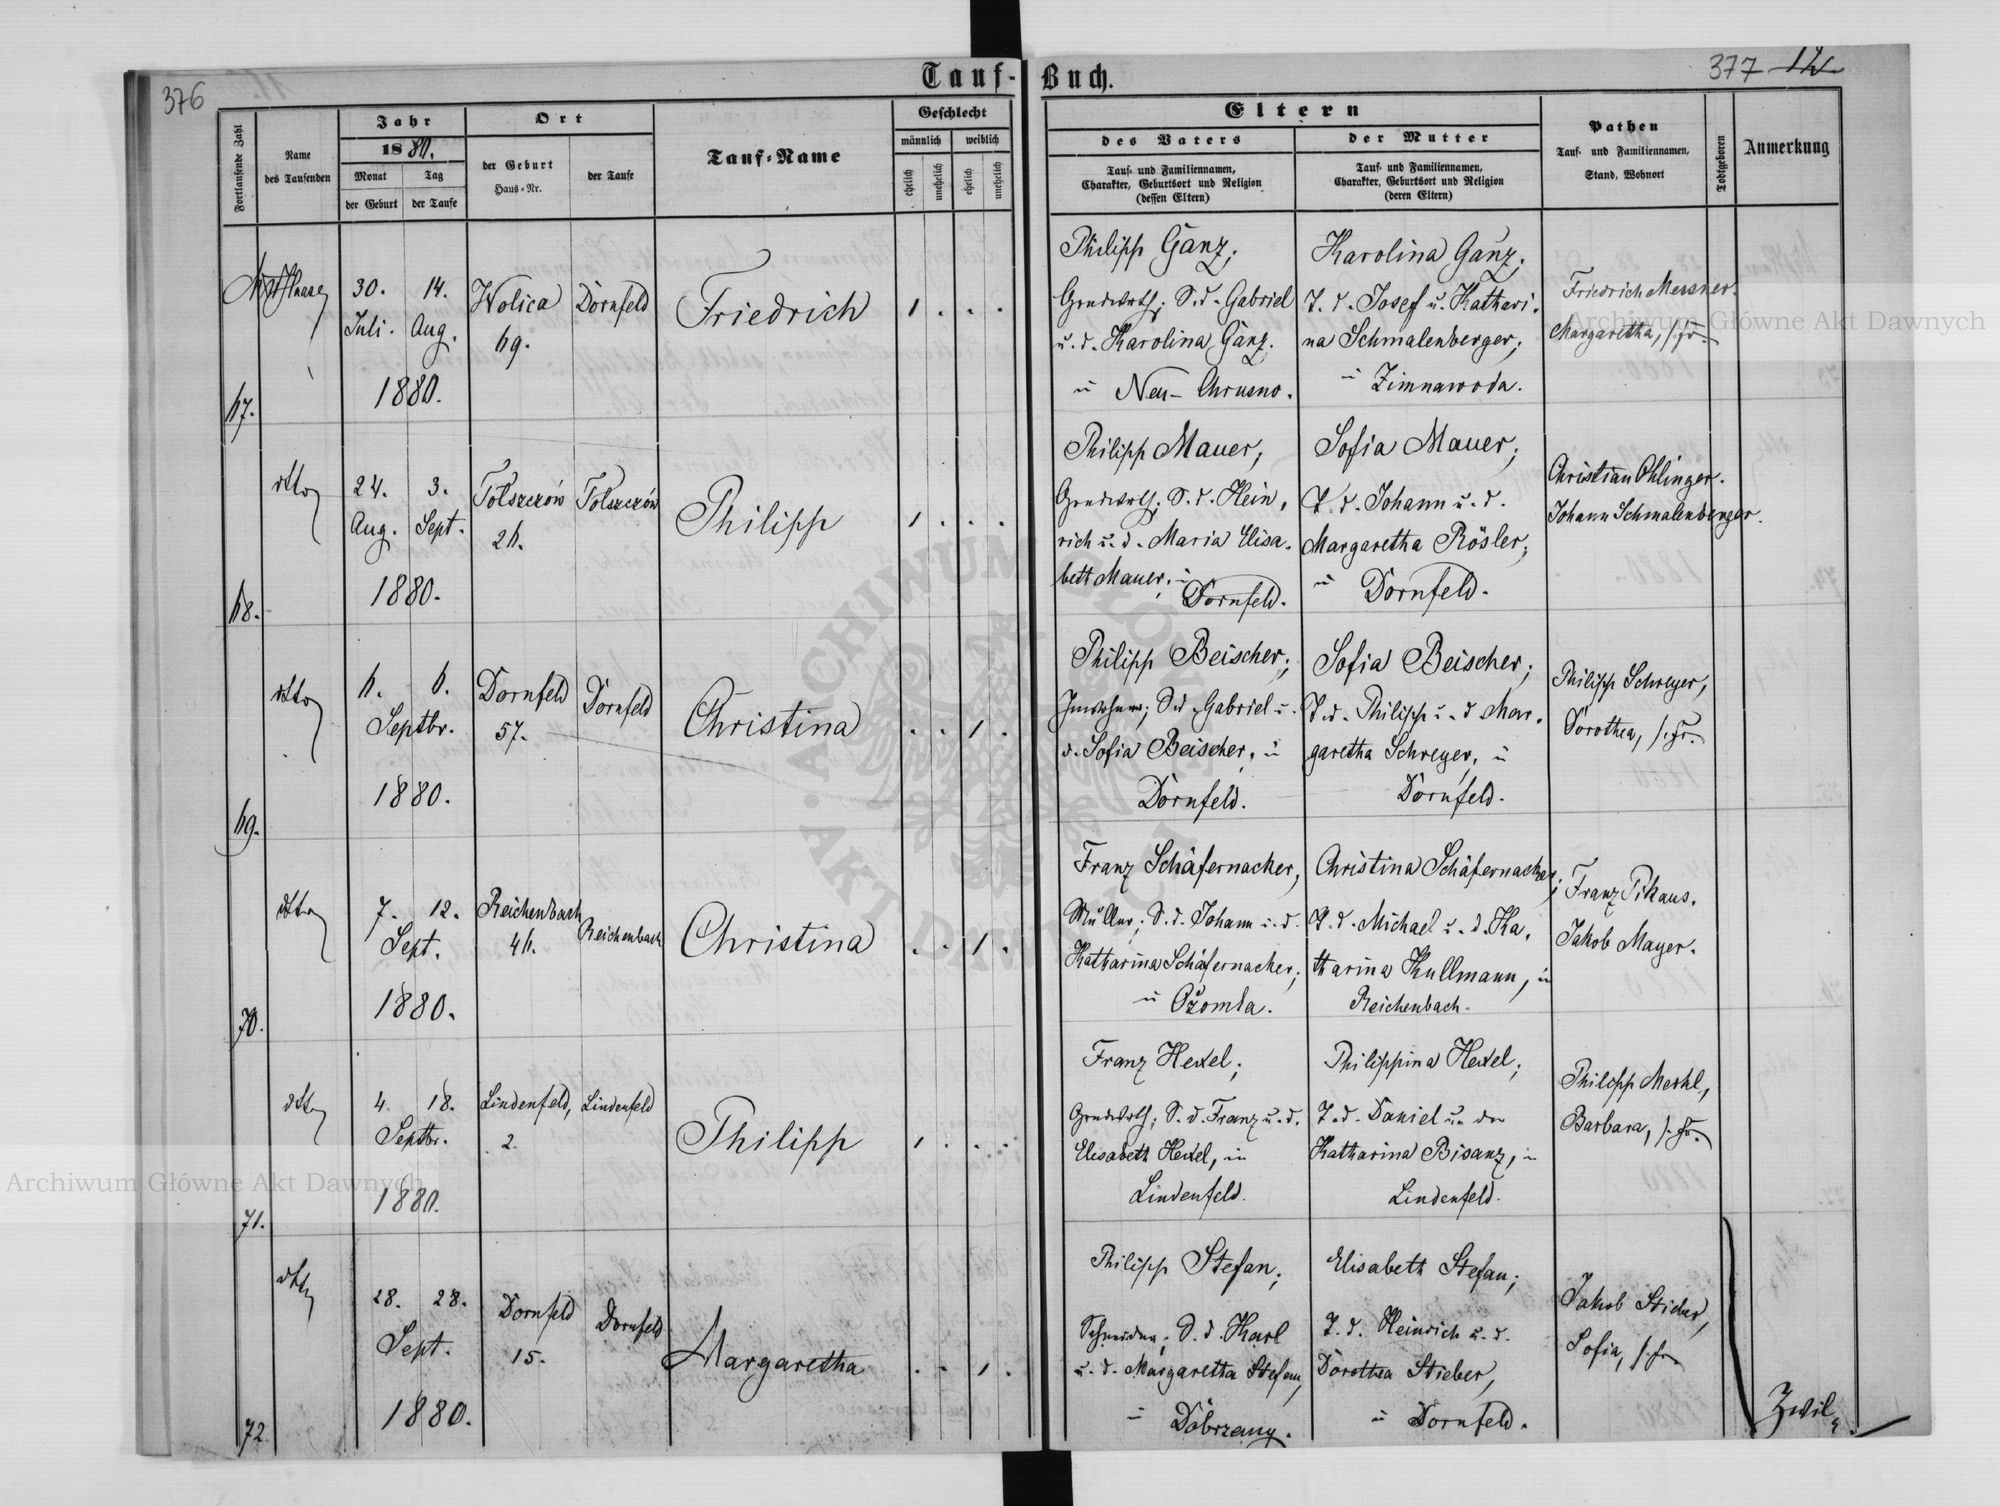 376
377 12
Tauf-Buch.
Fortlaufende Zahl
Name
des Taufenden
Jahr
1880.
Monat Tag
der Geburt der Taufe
Ort
der Geburt
Haus-Nr.
der Taufe
Tauf-Name
Geschlecht
männlich weiblich
ehelich unehelich ehelich unehelich
Eltern
des Vaters
Tauf- und Familiennamen,
Charakter, Geburtsort und Religion
(dessen Eltern)
der Mutter
Tauf- und Familiennamen,
Charakter, Geburtsort und Religion
(deren Eltern)
Pathen
Tauf- und Familiennamen,
Stand, Wohnort
Todtgeboren
Anmerkung
67.
30. 14.
Juli. Aug.
1880.
Wolica
69.
Dornfeld
Friedrich
1 . . .
Philipp Ganz;
Grundwrth; S. d. Gabriel
u. d. Karolina Ganz.
in Neu-Chrusno.
Karolina Ganz;
T. d. Josef u. Kathari-
na Schmalenberger;
in Zimnawoda.
Friedrich Messner.
Margaretha, s. Fr.
68.
dtto
24. 3.
Aug. Sept.
1880.
Tolszczów
26.
Tolszczów
Philipp
1 . . .
Philipp Mauer,
Grundwrth; S. d. Hein-
rich u. d. Maria Elisa-
beth Mauer, in
Dornfeld.
Sofia Mauer;
T. d. Johann u. d.
Margaretha Rösler;
in Dornfeld.
Christian Ohlinger.
Johann Schmalenberger.
69.
dtto
6. 6.
Septbr.
1880.
Dornfeld
57.
Dornfeld
Christina
. . 1 .
Philipp Beischer;
Inwohner; S. d. Gabriel u.
d. Sofia Beischer, in
Dornfeld.
Sofia Beischer;
T. d. Philipp u. d Mar-
garetha Schreyer, in
Dornfeld.
Philipp Schreyer,
Dorothea, s. Fr.
70.
dtto
7. 12.
Sept.
1880.
Reichenbach
46.
Reichenbach
Christina
. . 1 .
Franz Schäfernacker,
Müller; S. d. Johann u. d.
Katharina Schäfernacker;
in Ożomla.
Christina Schäfernacker;
T. d. Michael u. d. Ka-
tharina Kullmann, in
Reichenbach.
Franz Pikaus.
Jakob Mayer.
71.
dtto
4. 18.
Septbr.
1880.
Lindenfeld,
2.
Lindenfeld
Philipp
1 . . .
Franz Hexel;
Grundwrth; S. d. Franz u. d.
Elisabeth Hexel, in
Lindenfeld.
Philippina Hexel;
T. d. Daniel u. der
Katharina Bisanz, in
Lindenfeld.
Philipp Merkl,
Barbara, s. Fr.
72
dtto
28. 28.
Sept.
1880.
Dornfeld
15.
Dornfeld
Margaretha
. . 1 .
Philipp Stefan;
Schneider; S. d. Karl
u. d. Margaretha Stefan,
in Dobrzany.
Elisabeth Stefan;
T. d. Heinrich u. d.
Dorothea Stieber,
in Dornfeld.
Jakob Stieber,
Sofia, s. Fr.
Zwil-
Archiwum Główne Akt Dawnych
Archiwum Główne Akt Dawnych
ARCHIWUM GŁÓWNE AKT DAWNYCH